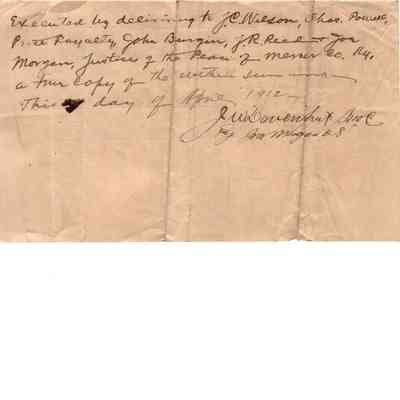 Executed by delivering to J.C. Wilson, Chas. Powell,
Price Royalty, John Burgin, J.R. Reed – Joe
Morgan, Justices of the Peace of Mercer Co. Ky.
a true copy of the within summons
This day of April 1912
J W Davenport
By D.S.